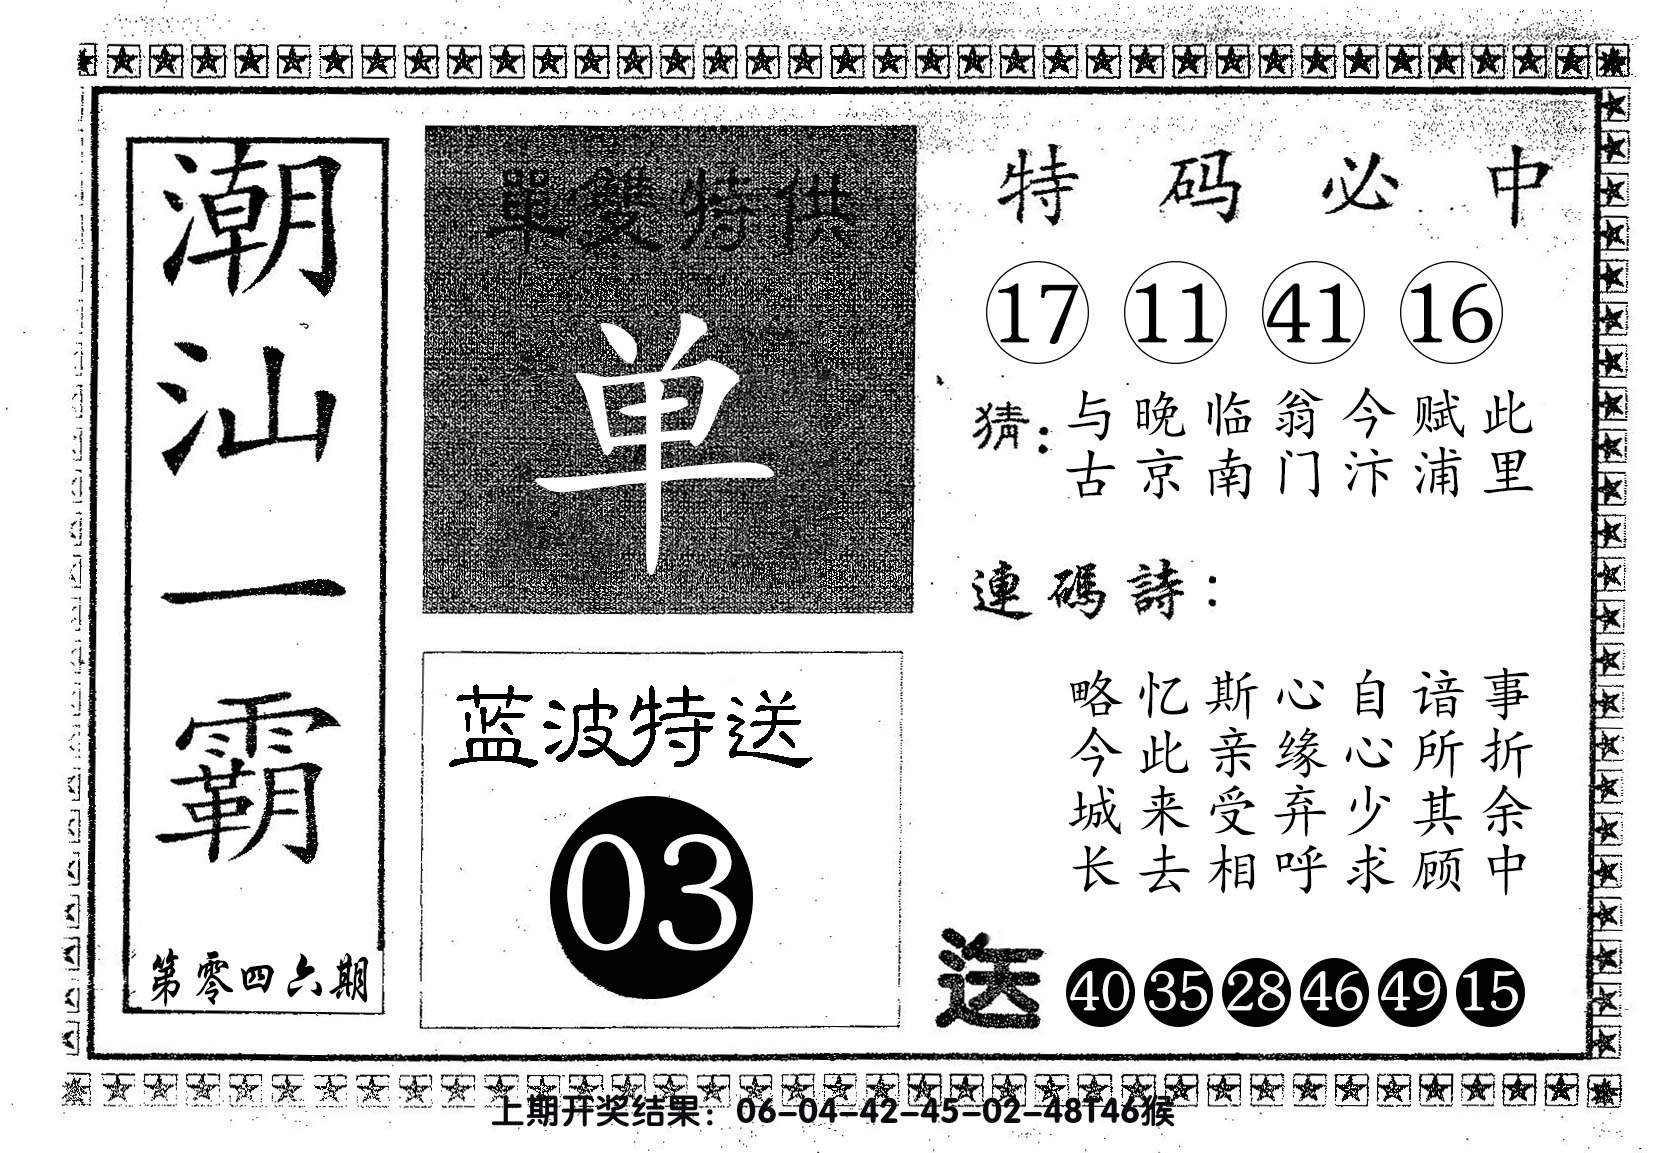 潮汕一霸
第零四六期
單雙特供
单
蓝波特送
03
特码必中
17 11 41 16
猜：
与晚临翁今赋此
古京南门汴浦里
連碼詩：
略忆斯心自谙事
今此亲缘心所折
城来受弃少其余
长去相呼求顾中
送 40 35 28 46 49 15
上期开奖结果：06-04-42-45-02-48T46猴